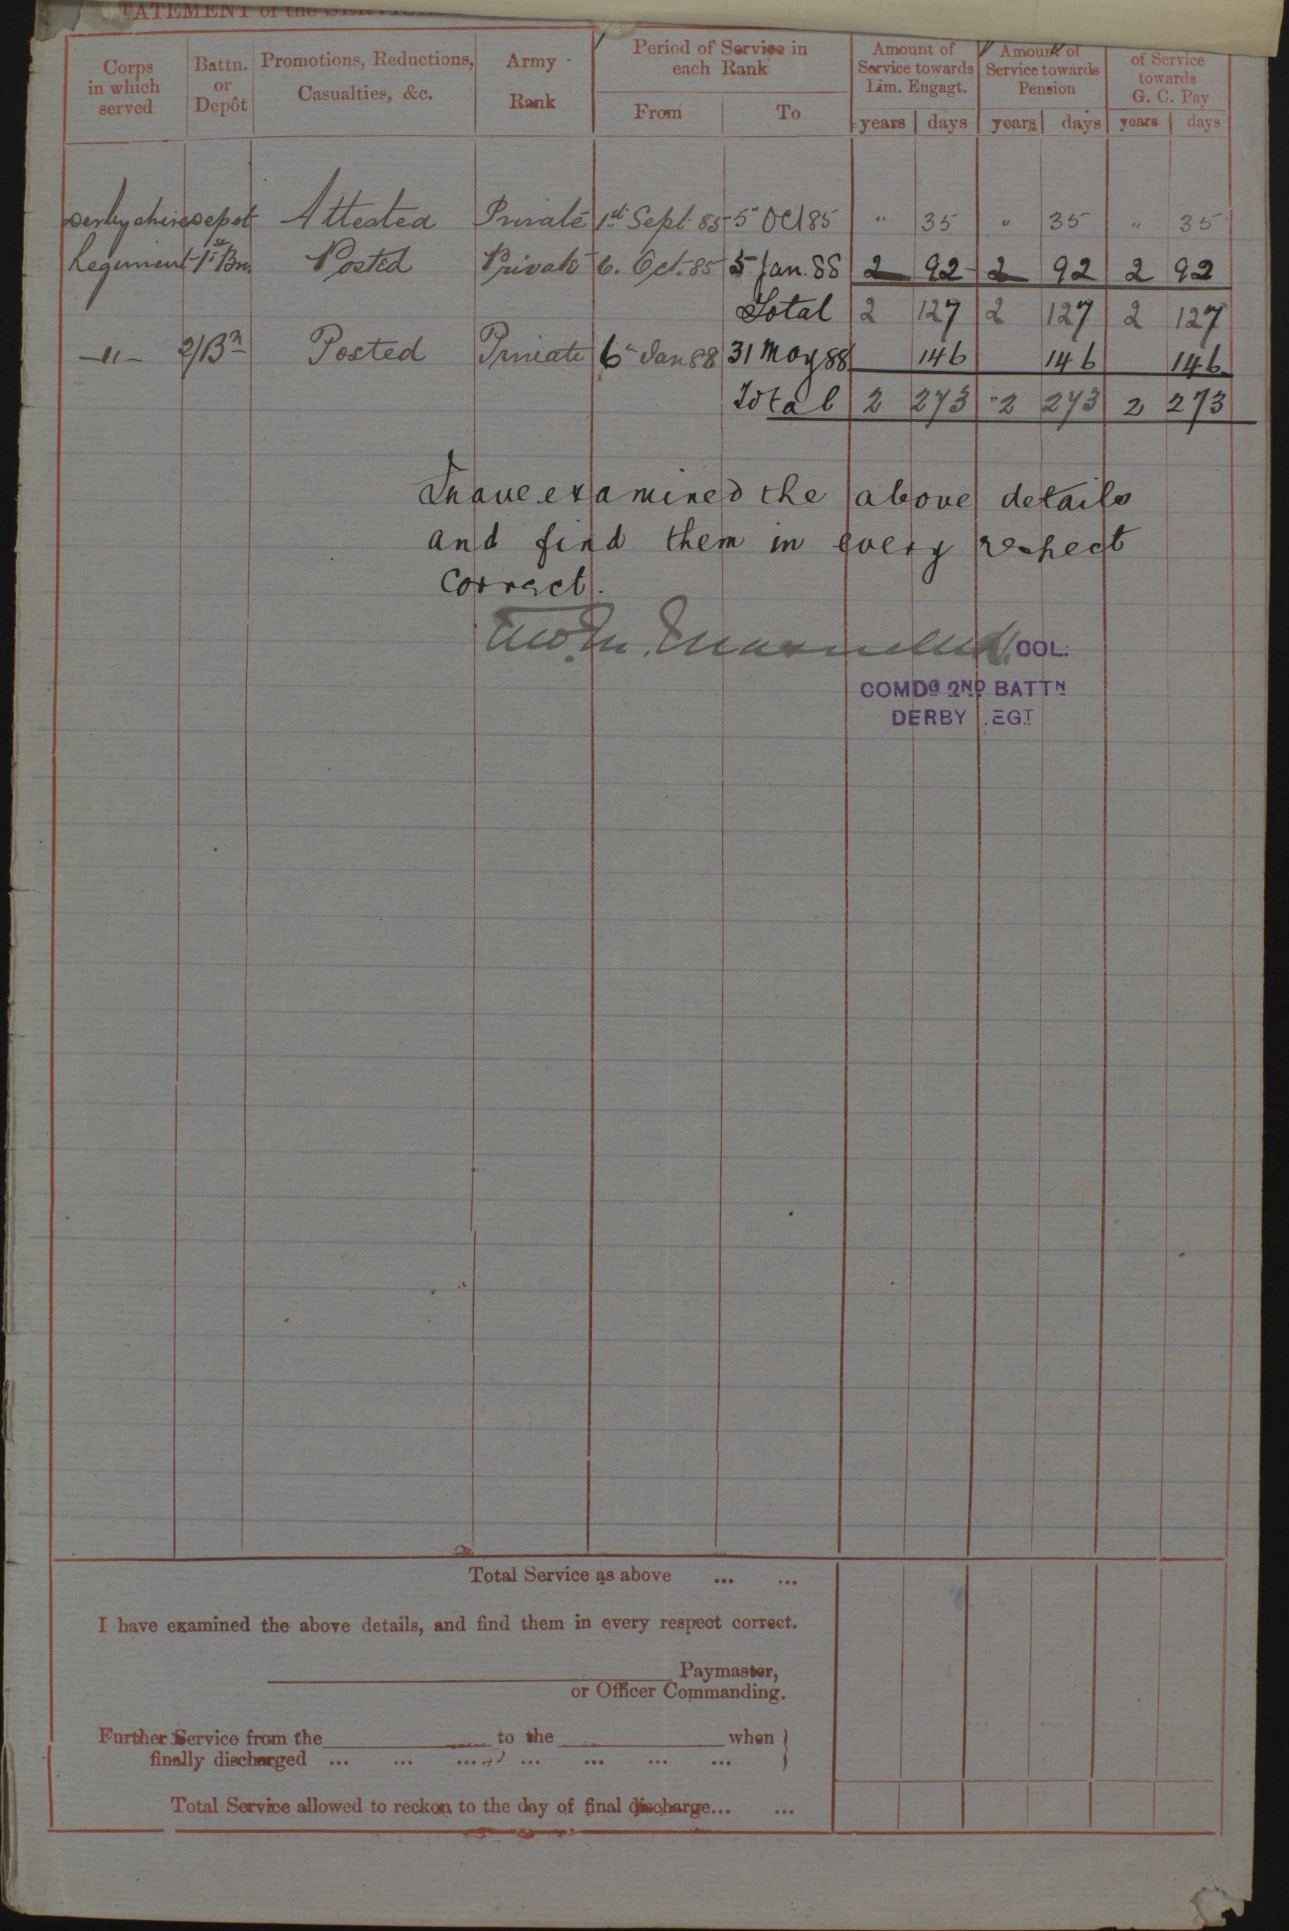 TATEMENT of the SERVICE
Corps in which served | Battn. or Depôt | Promotions, Reductions, Casualties, &c. | Army Rank | Period of Service in each Rank | Amount of Service towards Lim. Engagt. | Amount of Service towards Pension | of Service towards G. C. Pay
From | To | years | days | years | days | years | days
Derbyshire | Depot | Attested | Private | 1st Sept. 85 | 5" Oct 85 | " | 35 | " | 35 | " | 35
Regiment | 1st Bn. | Posted | Private | 6. Oct. 85 | 5 Jan. 88 | 2 | 92 | 2 | 92 | 2 | 92
Total | 2 | 127 | 2 | 127 | 2 | 127
—"— | 2/Bn | Posted | Private | 6" Jan 88 | 31 May 88 | 146 | 146 | 146
Total | 2 | 273 | 2 | 273 | 2 | 273
I have examined the above details
and find them in every respect
correct.
COL:
COMDG 2ND BATTN
DERBY .EGT
Total Service as above ... ...
I have examined the above details, and find them in every respect correct.
Paymaster,
or Officer Commanding.
Further Service from the to the when }
finally discharged ... ... ... ... ... ... ...
Total Service allowed to reckon to the day of final discharge... ...